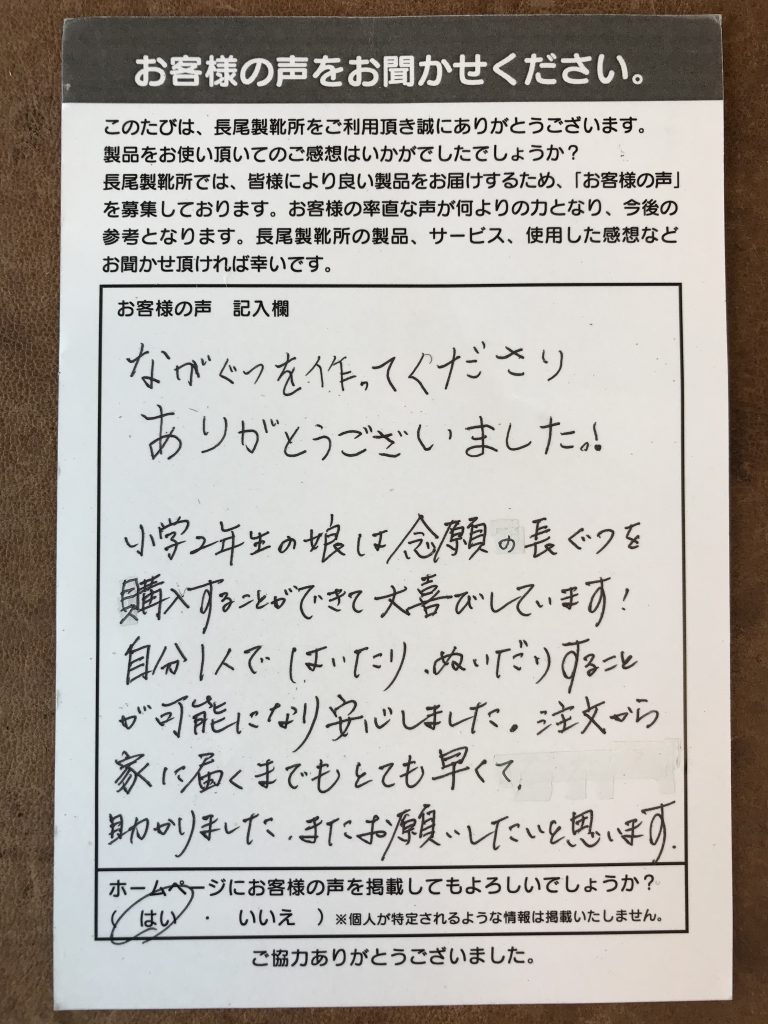 お客様の声をお聞かせください。
このたびは、長尾製靴所をご利用頂き誠にありがとうございます。
製品をお使い頂いてのご感想はいかがでしたでしょうか？
長尾製靴所では、皆様により良い製品をお届けするため、「お客様の声」
を募集しております。お客様の率直な声が何よりの力となり、今後の
参考となります。長尾製靴所の製品、サービス、使用した感想など
お聞かせ頂ければ幸いです。
お客様の声　記入欄
ながぐつを作ってくださり
ありがとうございました。!
小学2年生の娘は念願の長ぐつを
購入することができて大喜びしています！
自分1人ではいたり、ぬいだりすること
が可能になり安心しました。注文から
家に届くまでもとても早くて、
助かりました、またお願いしたいと思います。
ホームページにお客様の声を掲載してもよろしいでしょうか？
（　はい　・　いいえ　）※個人が特定されるような情報は掲載いたしません。
ご協力ありがとうございました。